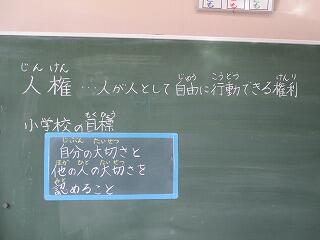 じん けん
人権…人が人として自由に行動できる権利
じゆう こうどう けんり
小学校の目標
もくひょう
自分の大切さと
じぶん たいせつ
他の人の大切さを
ほか ひと たいせつ
認めること
みと